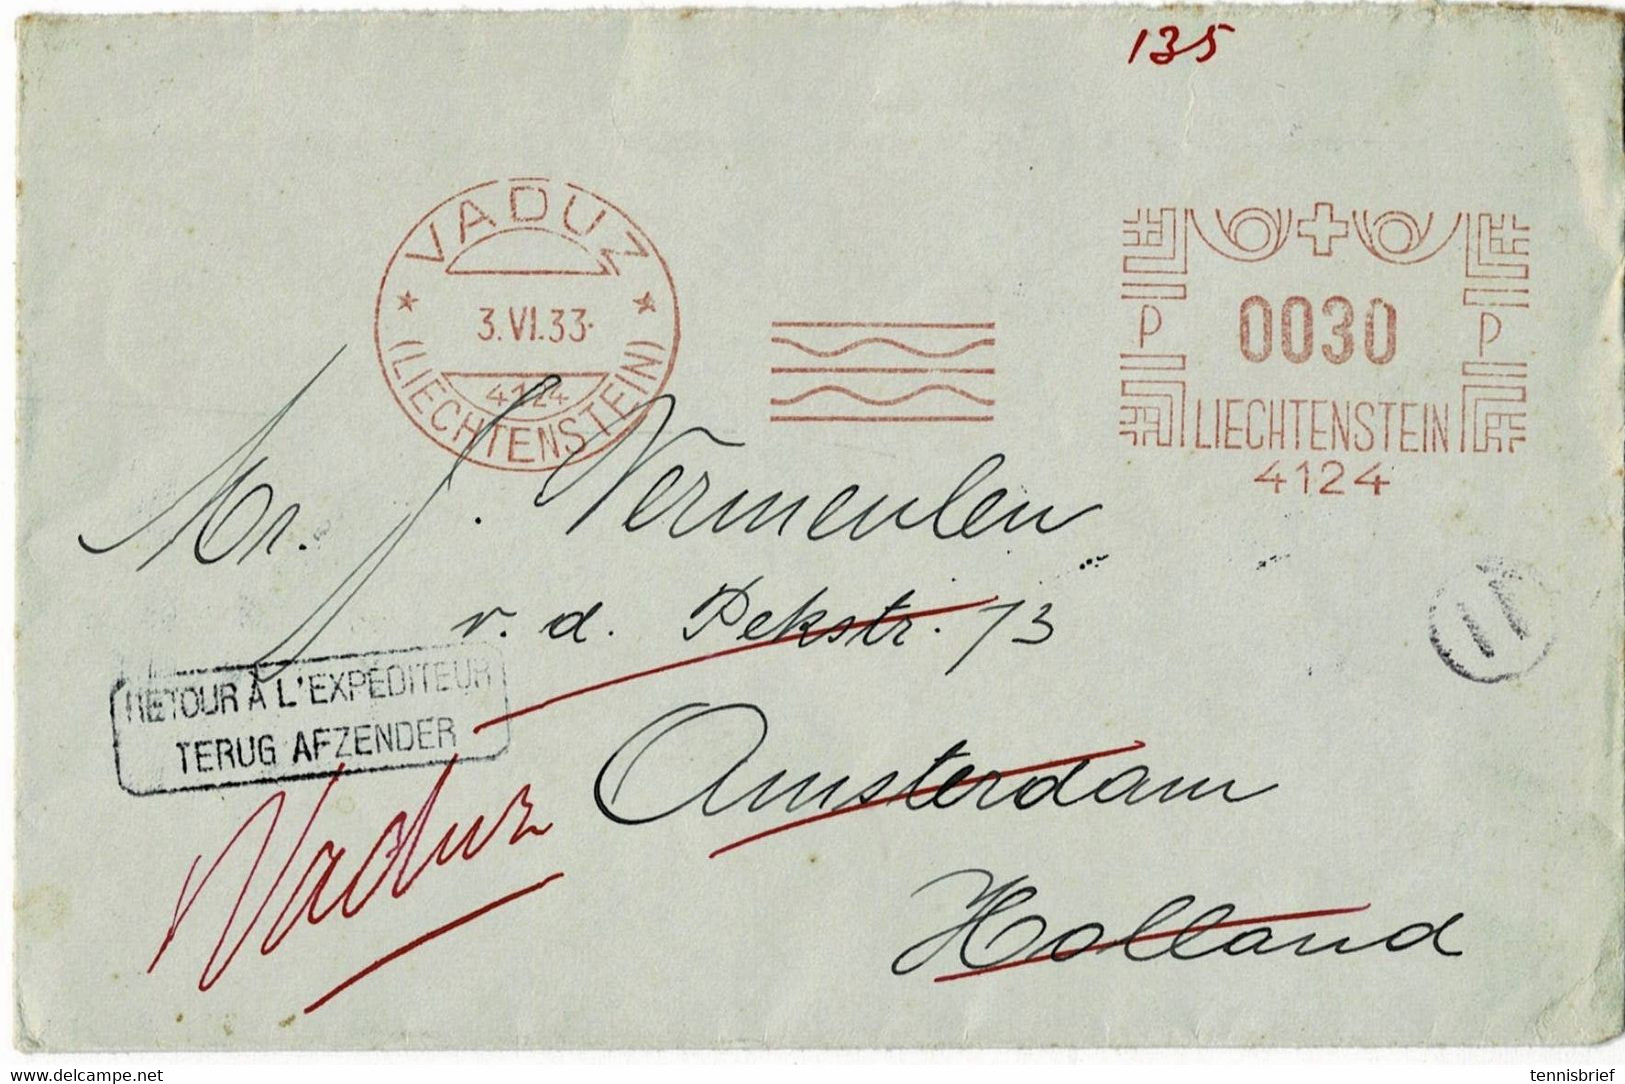 135
VADUZ
3.VI.33.
4124
(LIECHTENSTEIN)
P 0030 P
LIECHTENSTEIN
4124
Mr. J. Vermeulen
v. d. Pekstr. 73
Amsterdam
Holland
RETOUR À L'EXPÉDITEUR
TERUG AFZENDER
Vaduz
11
delcampe.net
tennisbrief